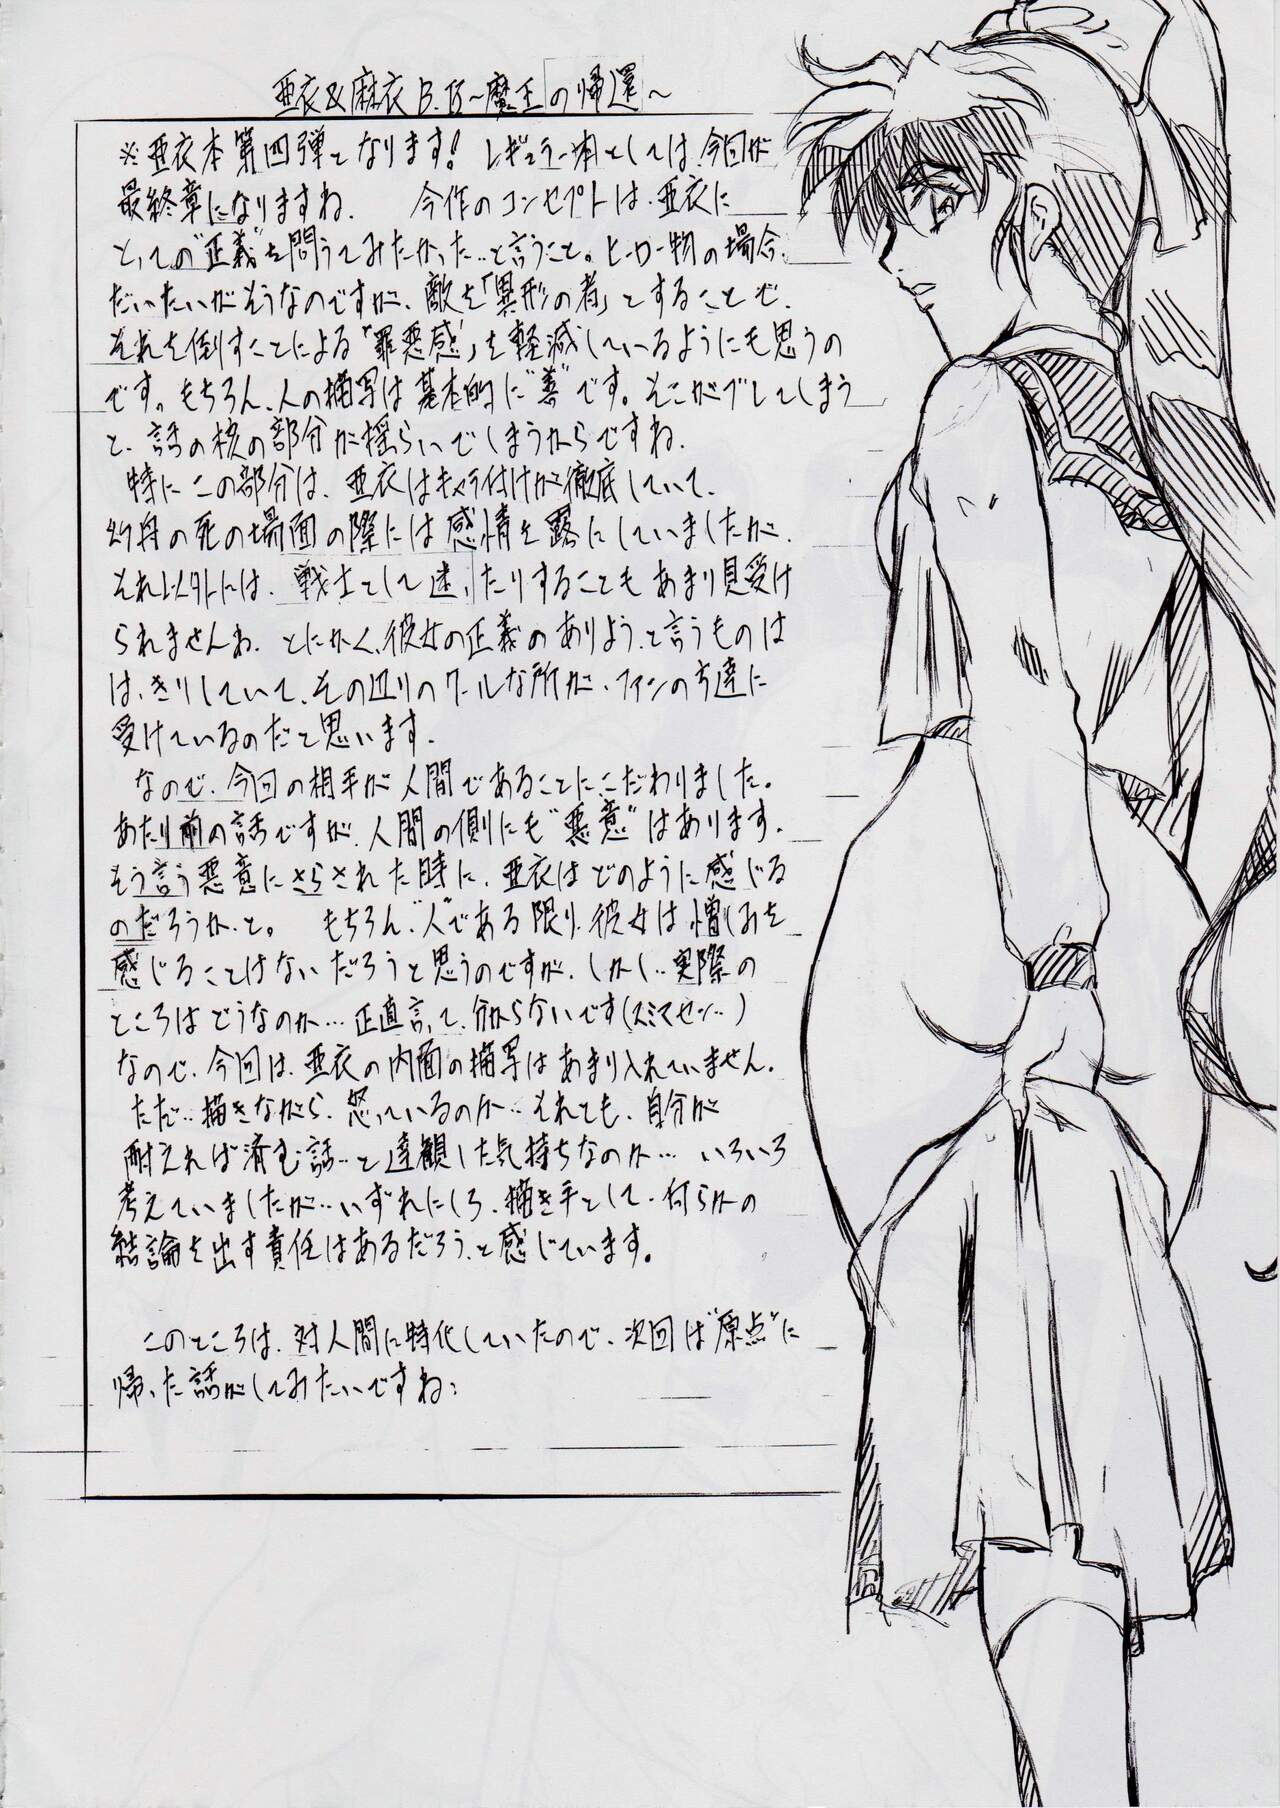 亜衣&麻衣 B.B～魔王の帰還～
※亜衣本第四弾となります! レギュラー本としては、今回が
最終章になりますね. 今作のコンセプトは、亜衣に
とっての"正義"を問うてみたかった…と言うこと。ヒーロー物の場合、
だいたいがそうなのですが、敵を「異形の者」とすることで、
それを倒すことによる「罪悪感」を軽減しているようにも思うの
です。もちろん、人の描写は基本的に"善"です。そこがブレてしまう
と、話の核の部分が揺らいでしまうからですね.
特にこの部分は、亜衣はキャラ付けが徹底していて、
幻舟の死の場面の際には感情を露にしていましたが、
それ以外には、戦士として迷ったりすることもあまり見受け
られませんね. とにかく、彼女の正義のありよう、と言うものは
はっきりしていて、その辺りのクールな所が、ファンの方達に
受けているのだと思います.
なので、今回の相手が人間であることにこだわりました。
あたり前の話ですが、人間の側にも"悪意"はあります.
そう言う悪意にさらされた時に、亜衣はどのように感じる
のだろうか、と。 もちろん、"人"である限り、彼女は憎しみを
感じることはないだろうと思うのですが、しかし…実際の
ところはどうなのか…正直言って、分からないです(スミマセン…)
なので、今回は、亜衣の内面の描写はあまり入れていません.
ただ…描きながら、怒っているのか…それとも、自分が
耐えれば済む話…と達観した気持ちなのか… いろいろ
考えていましたが…いずれにしろ、描き手として、何らかの
結論を出す責任はあるだろう、と感じています。
このところは、対人間に特化していたので、次回は"原点"に
帰った話がしてみたいですね;